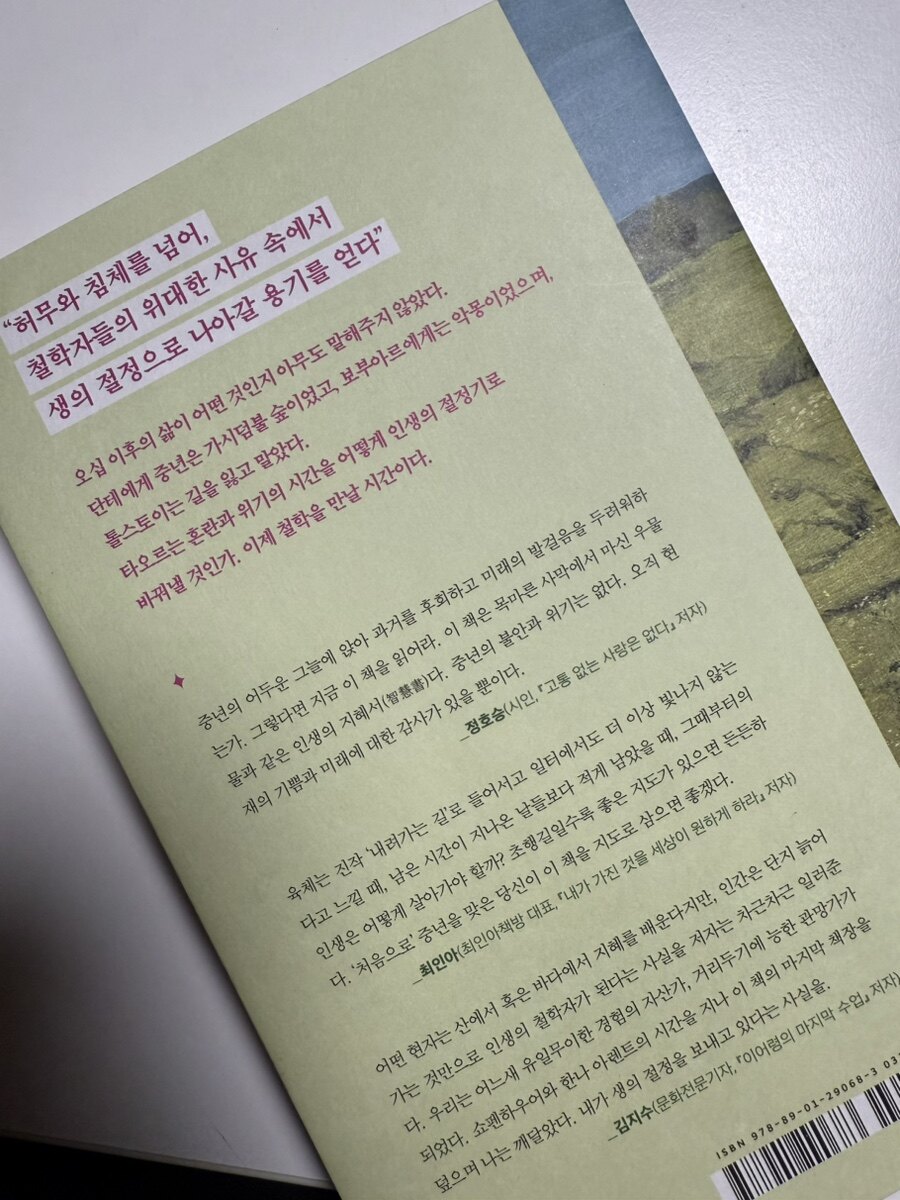 “허무와 침체를 넘어,
철학자들의 위대한 사유 속에서
생의 절정으로 나아갈 용기를 얻다”
오십 이후의 삶이 어떤 것인지 아무도 말해주지 않았다.
단테에게 중년은 가시덤불 숲이었고, 보부아르에게는 악몽이었으며,
톨스토이는 길을 잃고 말았다.
타오르는 혼란과 위기의 시간을 어떻게 인생의 절정기로
바꿔낼 것인가. 이제 철학을 만날 시간이다.
중년의 어두운 그늘에 앉아 과거를 후회하고 미래의 발걸음을 두려워하
는가. 그렇다면 지금 이 책을 읽어라. 이 책은 목마른 사막에서 마신 우물
물과 같은 인생의 지혜서(智慧書)다. 중년의 불안과 위기는 없다. 오직 현
재의 기쁨과 미래에 대한 감사가 있을 뿐이다.
_정호승(시인, 『고통 없는 사랑은 없다』 저자)
육체는 진작 ‘내려가는 길’로 들어서고 일터에서도 더 이상 빛나지 않는
다고 느낄 때, 남은 시간이 지나온 날들보다 적게 남았을 때, 그때부터의
인생은 어떻게 살아가야 할까? 초행길일수록 좋은 지도가 있으면 든든하
다. ‘처음으로’ 중년을 맞은 당신이 이 책을 지도로 삼으면 좋겠다.
_최인아(최인아책방 대표, 『내가 가진 것을 세상이 원하게 하라』 저자)
어떤 현자는 산에서 혹은 바다에서 지혜를 배운다지만, 인간은 단지 늙어
가는 것만으로 인생의 철학자가 된다는 사실을 저자는 차근차근 일러준
다. 우리는 어느새 유일무이한 경험의 자산가, 거리두기에 능한 관망가가
되었다. 쇼펜하우어와 한나 아렌트의 시간을 지나 이 책의 마지막 책장을
덮으며 나는 깨달았다. 내가 생의 절정을 보내고 있다는 사실을.
_김지수(문화전문기자, 『이어령의 마지막 수업』 저자)
ISBN 978-89-01-29068-3